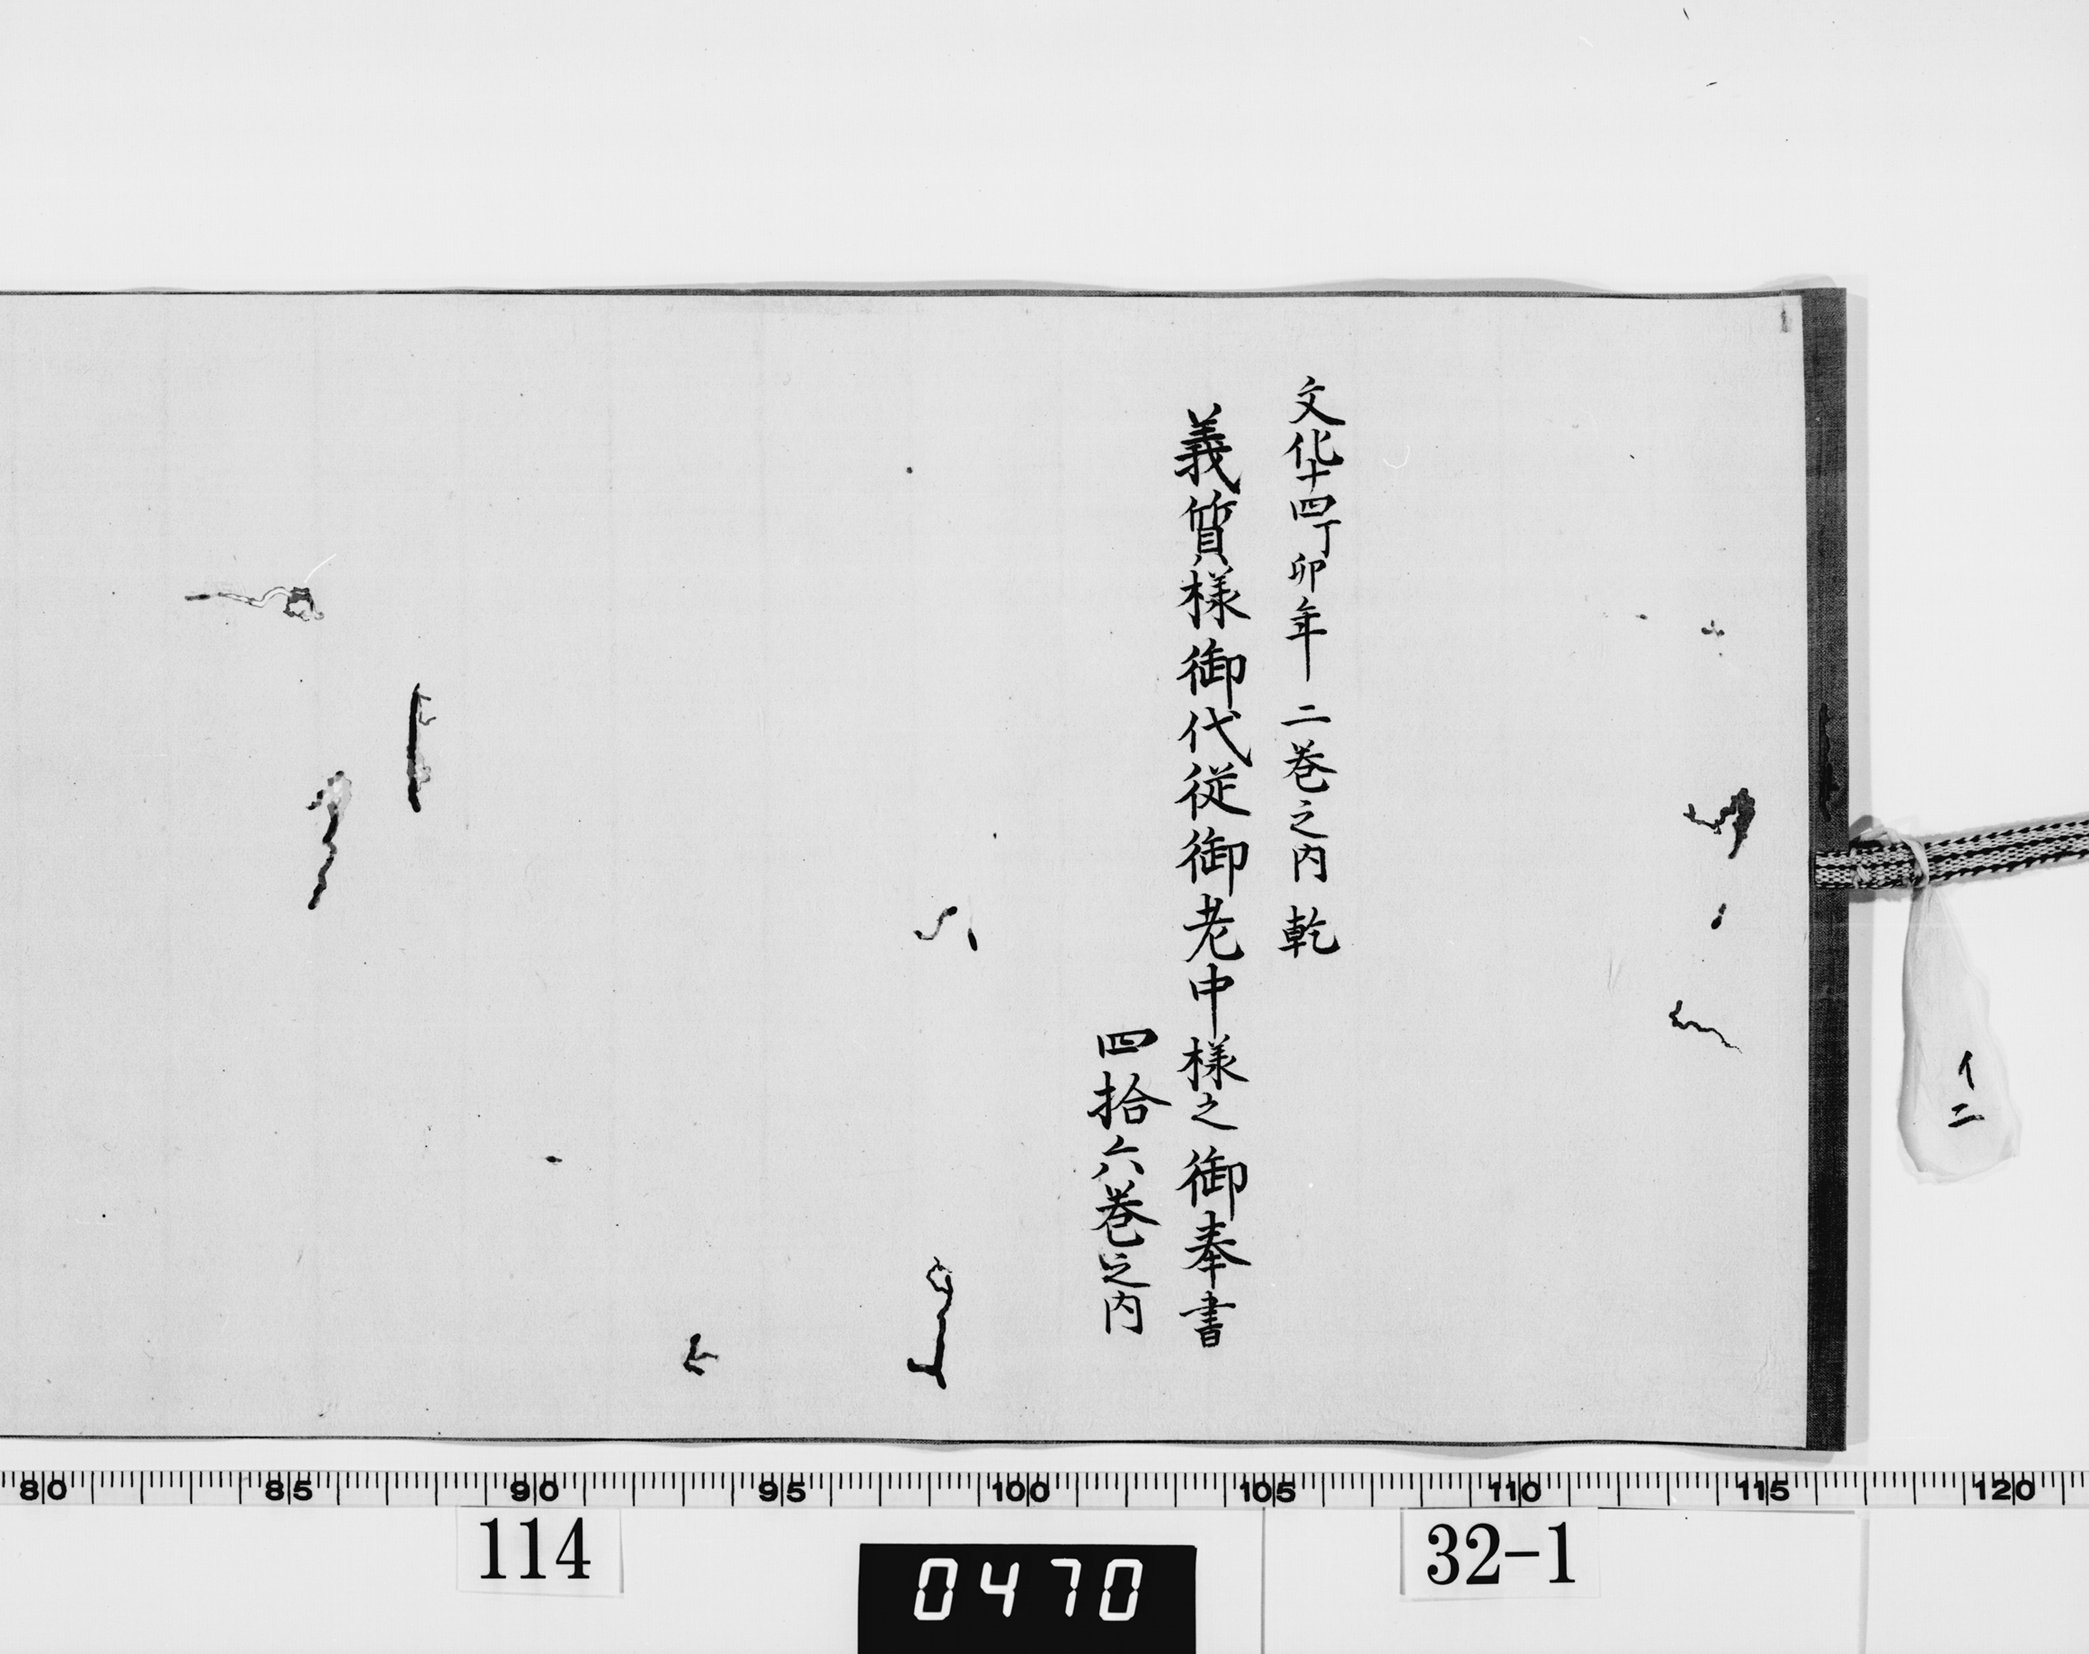 文化十四丁卯年 二巻之内 乾
義質様御代従御老中様之御奉書
四拾六巻之内
イ二
80 85 90 95 100 105 110 115 120
114
0470
32-1